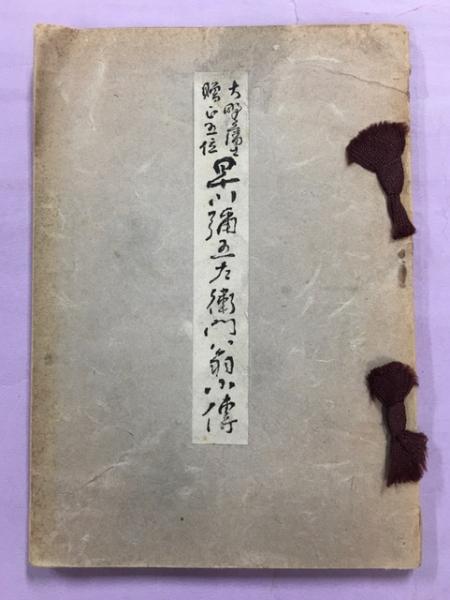 大野藩士
贈正五位
早川彌五左衛門翁小傳